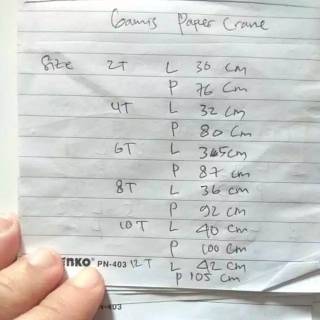 Gamis Paper Crane
Size 2T L 30 cm
P 76 cm
4T L 32 cm
P 80 cm
6T L 345cm
P 87 cm
8T L 36 cm
P 92 cm
10T L 40 cm
P 100 cm
ENKO PN-403 12T L 42 cm
P 105 cm
-403